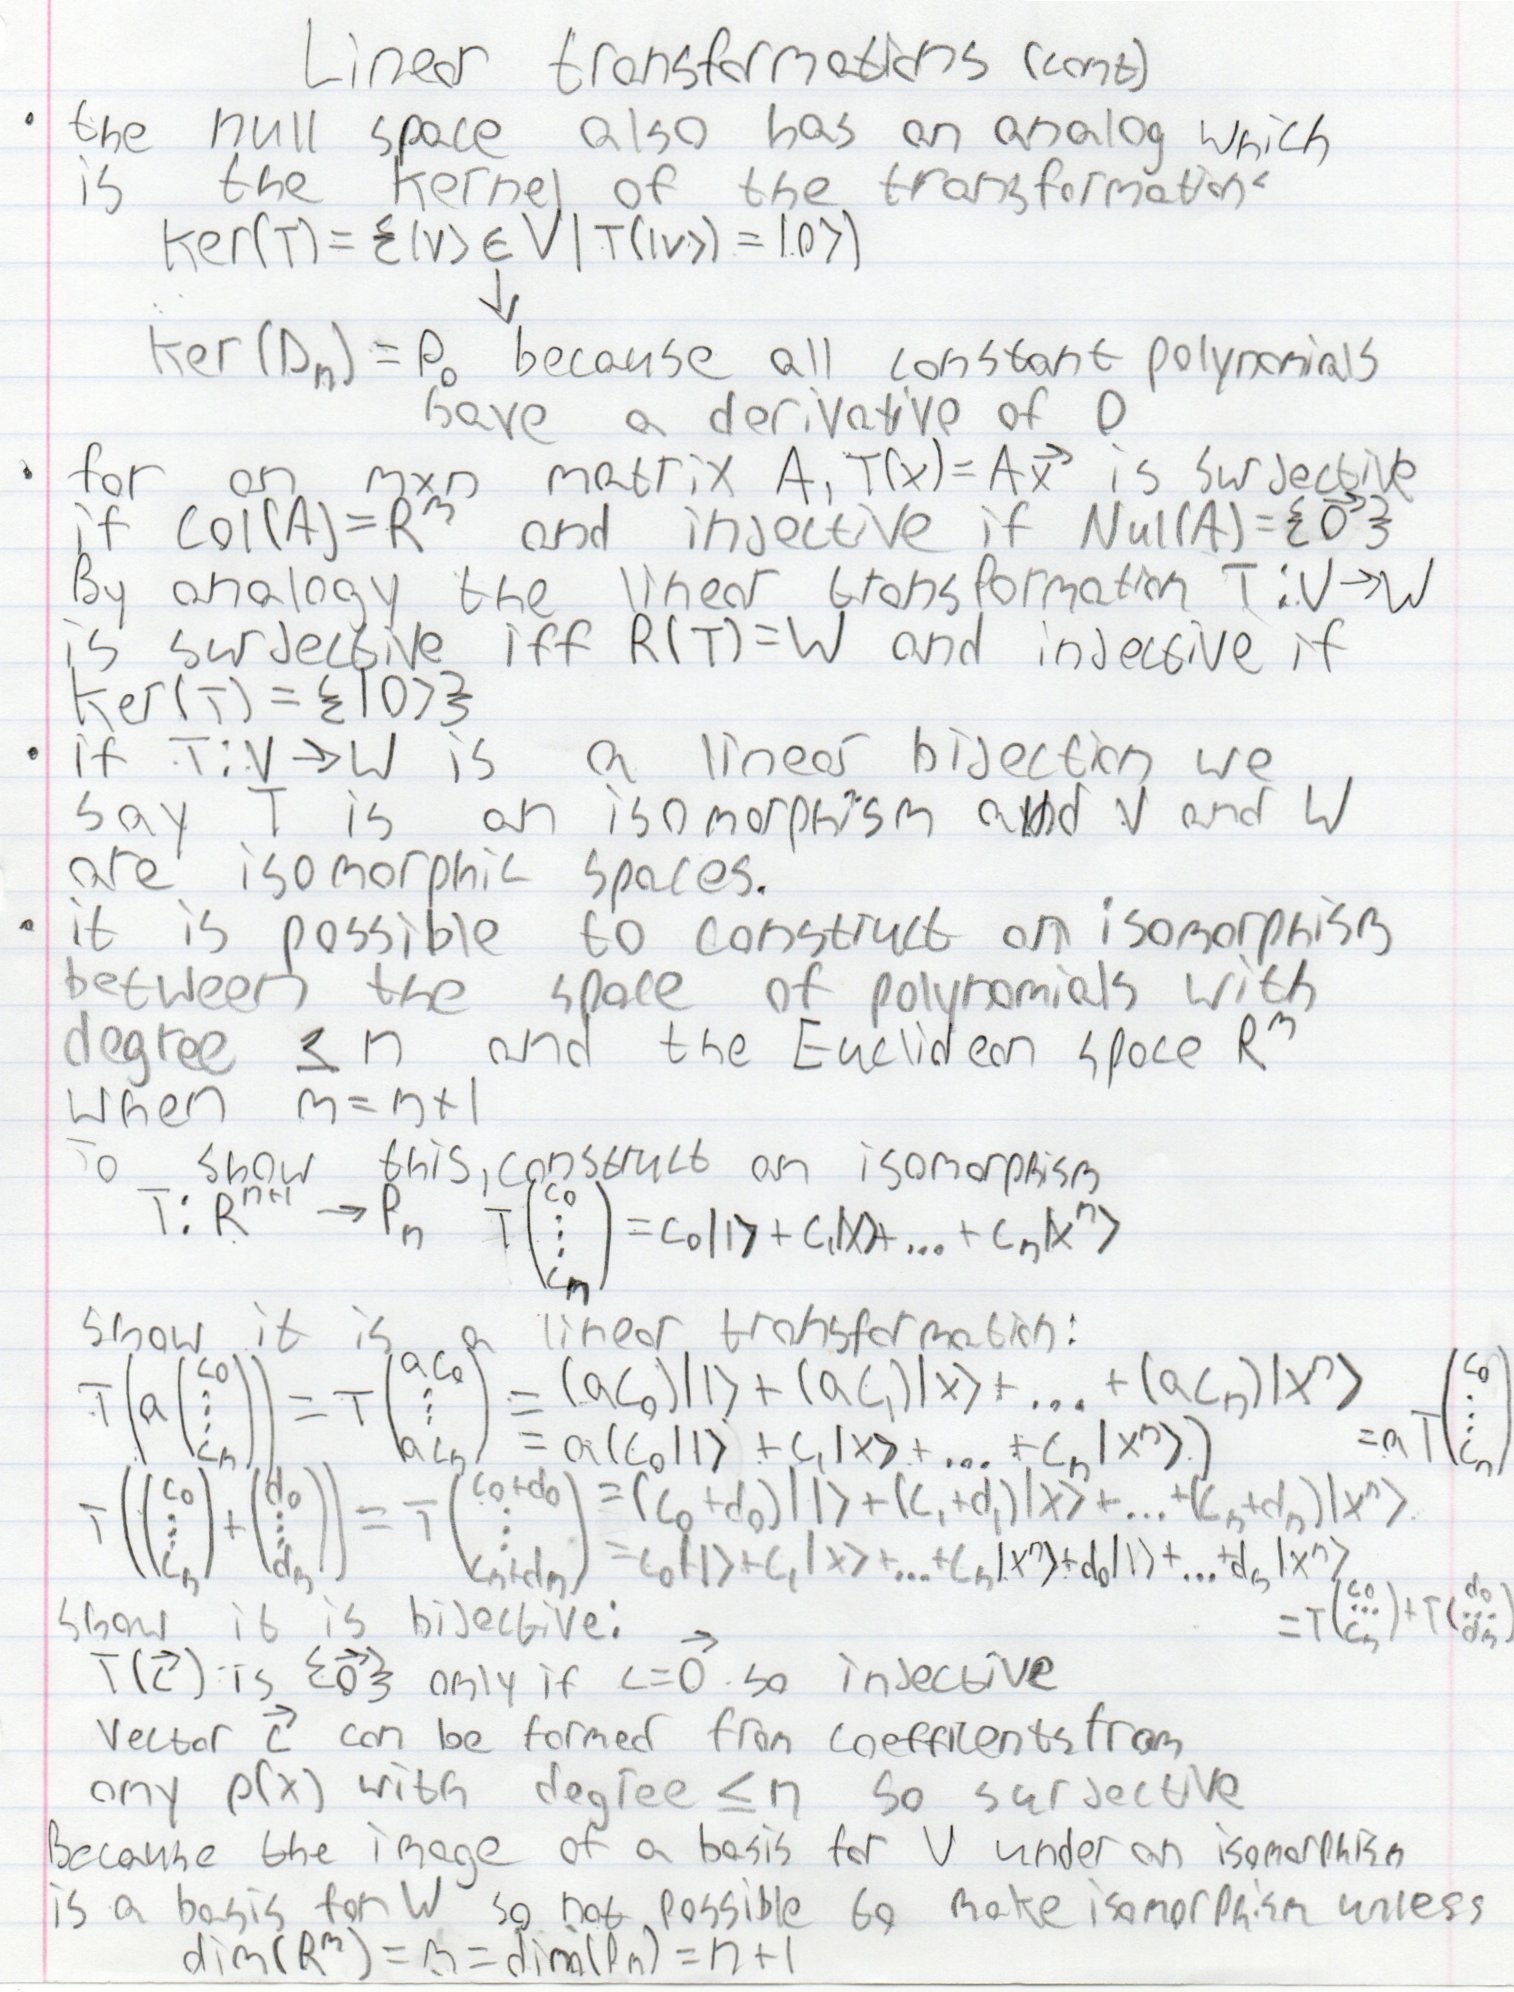 Linear transformations (cont)
• the null space also has an analog which
is the kernel of the transformation:
Ker(T) = {|v> ∈ V | T(|v>) = |0>}
↓
Ker(Dn) = P0 because all constant polynomials
have a derivative of 0
• for an mxn matrix A, T(x) = Ax⃗ is surjective
if Col(A) = R^m and injective if Nul(A) = {0⃗}
By analogy the linear transformation T: V → W
is surjective iff R(T) = W and injective if
Ker(T) = {|0>}
• if T: V → W is a linear bijection we
say T is an isomorphism and V and W
are isomorphic spaces.
• it is possible to construct an isomorphism
between the space of polynomials with
degree ≤ n and the Euclidean space R^m
when m = n+1
To show this, construct an isomorphism
T: R^(n+1) → Pn T(c0 ⋮ cn) = c0|1> + c1|x> + ... + cn|x^n>
show it is a linear transformation:
T(a(c0 ⋮ cn)) = T(ac0 ⋮ acn) = (ac0)|1> + (ac1)|x> + ... + (acn)|x^n>
= a(c0|1> + c1|x> + ... + cn|x^n>) = aT(c0 ⋮ cn)
T((c0 ⋮ cn) + (d0 ⋮ dn)) = T(c0+d0 ⋮ cn+dn) = (c0+d0)|1> + (c1+d1)|x> + ... + (cn+dn)|x^n>
= c0|1> + c1|x> + ... + cn|x^n> + d0|1> + ... + dn|x^n>
= T(c0 ... cn) + T(d0 ... dn)
show it is bijective:
T(c⃗) is {0⃗} only if c = 0⃗ so injective
vector c⃗ can be formed from coefficents from
any p(x) with degree ≤ n so surjective
Because the image of a basis for V under an isomorphism
is a basis for W so not possible to make isomorphism unless
dim(R^m) = m = dim(Pn) = n+1